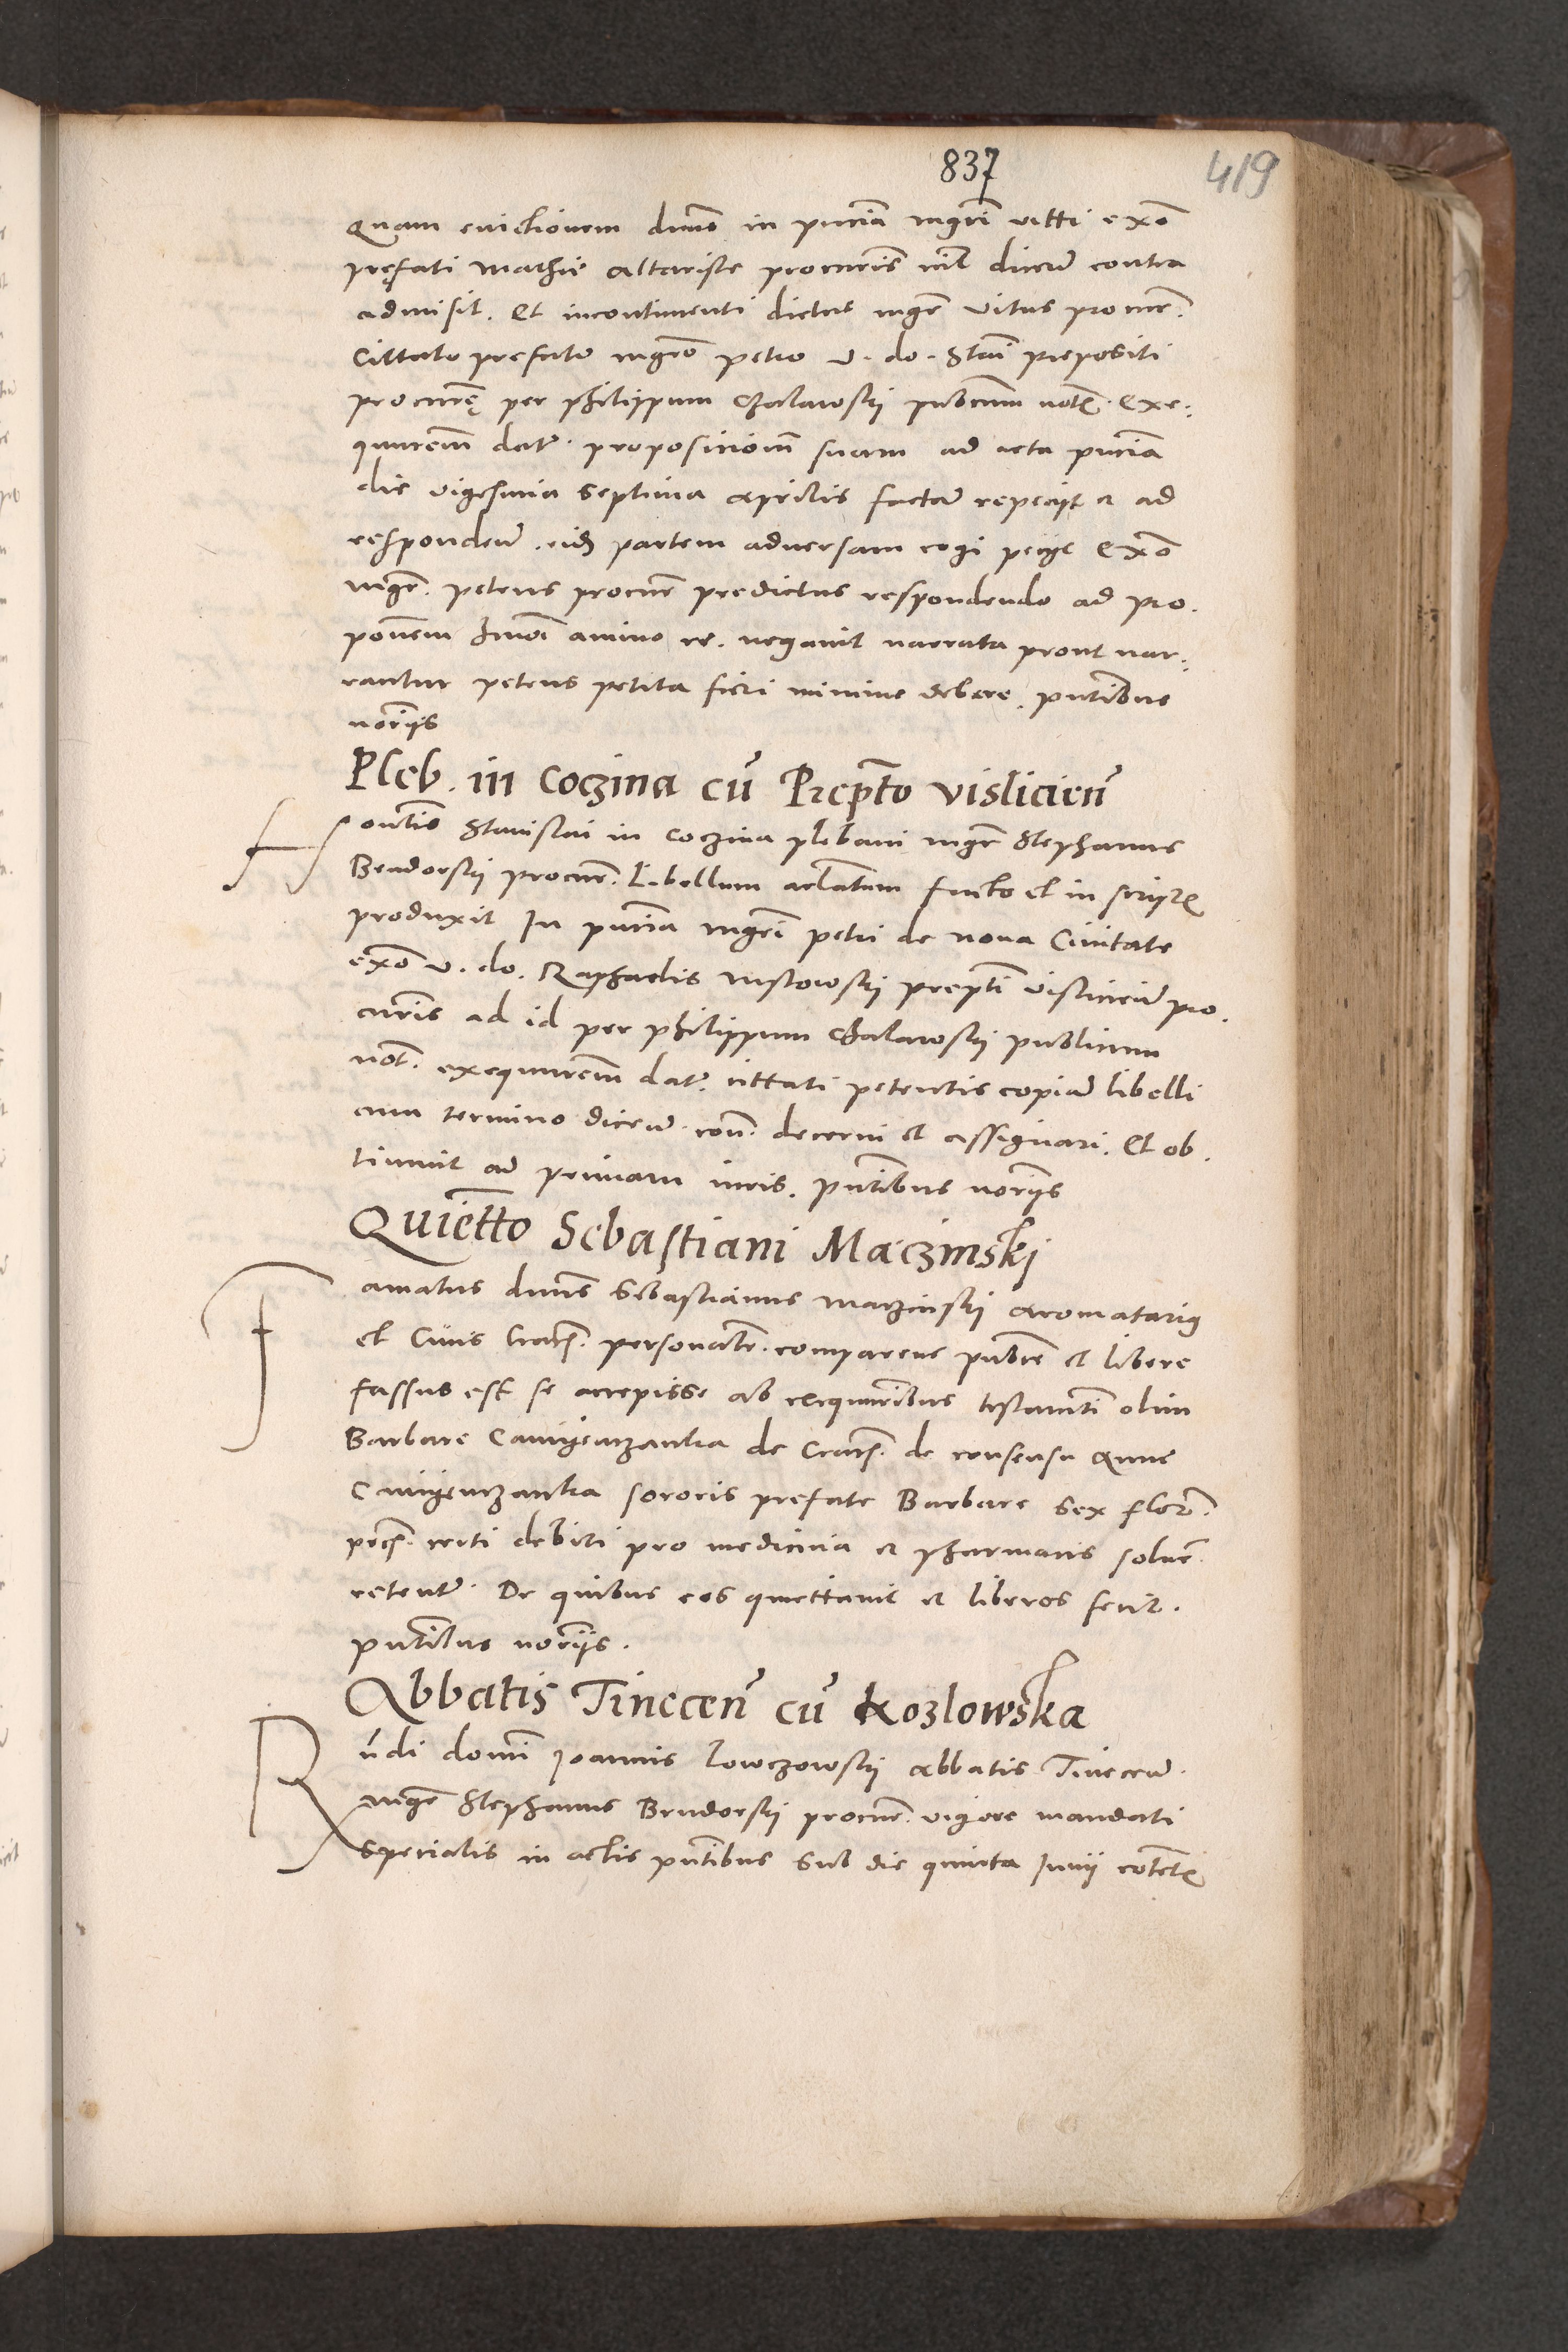 837
419
Quam evictionem dnus in pñcia mgri vitti exõ
prefati Mathie altariste procuris nil dicen contra
admisit. Et incontinenti dictus mgr vitus procur.
Cittato prefato mgro petro v. do. Stai prepositi
procure per philippum Chalawskij publicum not. exe:
quutem dat. proposicionem suam ad acta pñcia
die vigesima septima aprilis factam repeciit et ad
respondem. eid partem adversam cogi peciit Exõ
mgr. petrus procur predictus respondendo ad pro.
ponem hmoi animo re. negavit narrata prout nar:
rantur petens petita fieri minime debere. pñtibus
noriis
Pleb. in Coczina cũ Prepto visliciẽn
Hontis Stanislai in coczina plebani mgr Stephanus
Brudorskij procur. Libellum aclatum facto et in script
produxit In pñcia mgri petri de nova Civitate
exõ v. do. Raphaelis wstowskij prepti visliciem pro.
curis ad id per philippum Chalawskij publicum
not. exequutem dat. cittati petentis copiam libelli
cum termino dicem. con. decerni et assignari. Et ob.
tinuit ad primam iuris. pñtibus noriis
Quietto Sebastiani Maczinskj
Famatus dnus Sebastianus maczinskij aromatarius
et Civis Crac. personalr. comparens publice et libere
fassus est se accepisse ab exequutoribus testamti olim
Barbare de Crac. de consensu Anne
sororis prefate Barbare sex flor.
pec. certi debiti pro medicina et pharmacis solvem.
retent. De quibus eos quiettavit et liberos fecit.
pñtibus noriis.
Abbatis Tinecen cũ Kozlowska
Rndi domi Joannis Lowczowskij abbatis Tinecem.
mgr Stephanus Brudorskij procur. vigore mandati
specialis in actis pñtibus sub die quinta Junij content